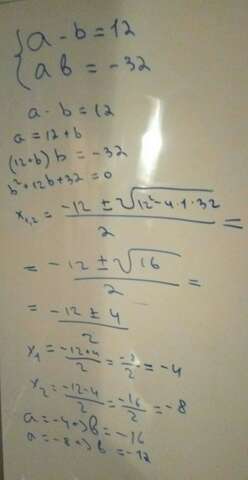 a - b = 12
ab = -32
a - b = 12
a = 12 + b
(12+b) b = -32
b² + 12b + 32 = 0
x₁,₂ = (-12 ± √(12² - 4·1·32)) / 2 =
= (-12 ± √16) / 2 =
= (-12 ± 4) / 2
x₁ = (-12+4)/2 = -8/2 = -4
x₂ = (-12-4)/2 = -16/2 = -8
a = -4 => b = -16
a = -8 => b = -12